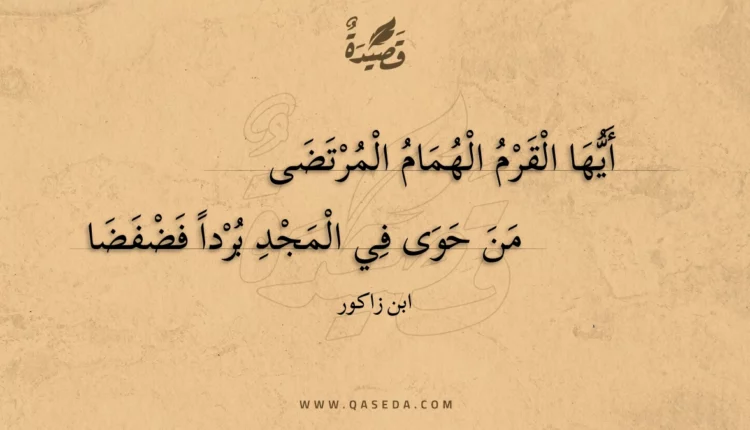 قَصِيْدَةٌ
أَيُّهَا الْقَرْمُ الْهُمَامُ الْمُرْتَضَى
مَنَ حَوَى فِي الْمَجْدِ بُرْداً فَضْفَضَا
ابن زاكور
WWW.QASEDA.COM